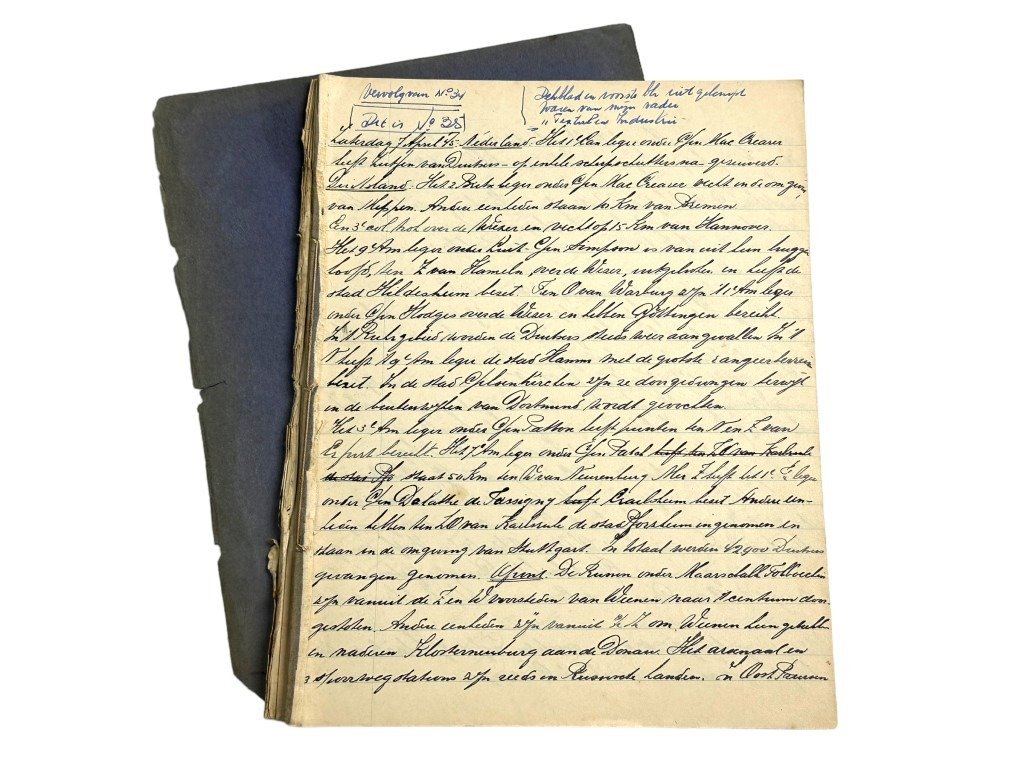 Vervolg van No 34
Dit is No 35
Dekblad en voorste blz niet geknipt
waren van mijn vader
"Textiel en Industrie
Zaterdag 7 April 45. Nederland. Het 1e Can leger onder Gen Mac Crearer
heeft Zutfen van Duitsers - op enkele scherpschutters na gezuiverd.
Duitsland. Het 2e Britse leger onder Gen Mac Crearer vecht in de omgeving
van Meppen. Andere eenheden staan 10 Km van Bremen.
Een 3e col. trok over de Wezer en vecht op 15 Km van Hannover.
Het 9e Am leger onder Luit. Gen Simpson is vanuit hun bruggen
hoofd, ten Z van Hameln over de Weser, uitgebroken en heeft de
stad Hildesheim bezet. Ten O van Warburg zijn 't 1e Am leger
onder Gen Hodges over de Weser en hebben Göttingen bereikt.
In 't Ruhrgebied worden de Duitsers steeds weer aangevallen. In 't
N heeft 't 9e Am leger de stad Hamm met de grootste rangeerterrein
bezet. In de stad Gelsenkirchen zijn ze doorgedrongen terwijl
in de buitenwijken van Dortmund wordt gevochten.
Het 3e Am leger onder Gen Patton heeft punten ten N en Z van
Erfurt bereikt. Het 7e Am leger onder Gen Patch heeft ten ZO van Karlsrule
de stad Pfo staat 50 Km ten W van Neurenburg. Meer Z heeft het 1e Fr leger
onder Gen Delattre de Tassigny heeft Crailsheim bezet. Andere een-
heden hebben ten ZO van Karlsrule de stad Pforsheim ingenomen en
staan in de omgeving van Stuttgart. In totaal werden 42900 Duitsers
gevangen genomen. Ofront. De Russen onder Maarschalk Tolboechin
zijn vanuit de Z en W voorsteden van Weenen naar 't centrum door-
gestoten. Andere eenheden zijn vanuit 't Z om Weenen heen getrokken
en naderen Klosterneuburg aan de Donau. Het arsenaal en
3 spoorwegstations zijn reeds in Russische handen. In Oost Pruisen